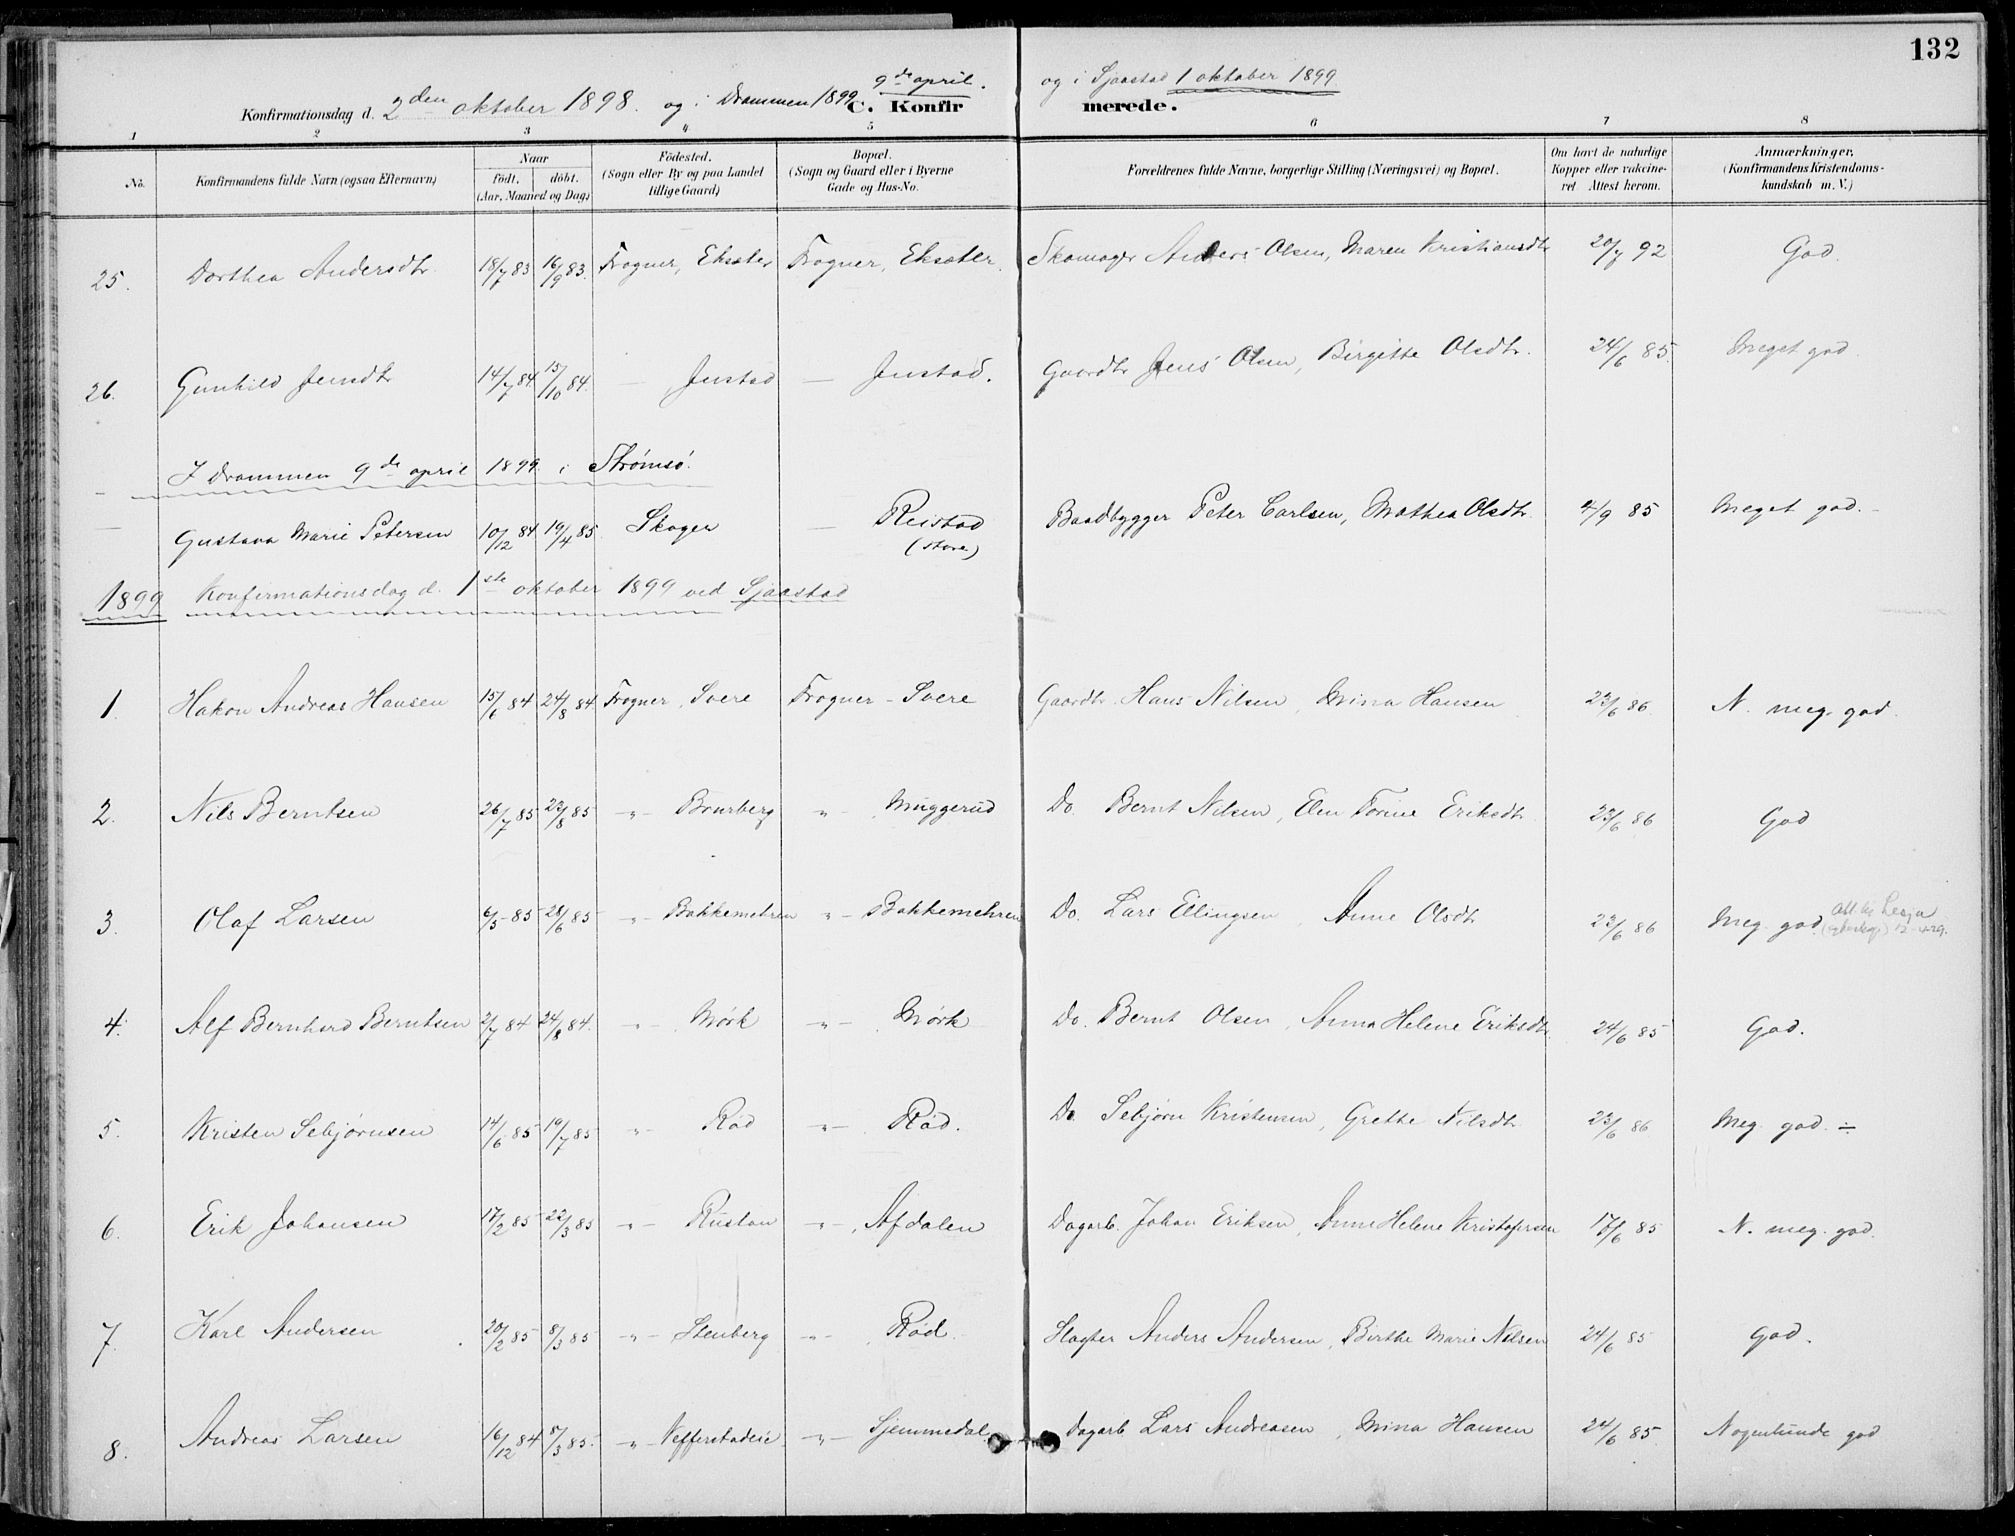 132
Konfirmationsdag d. 2den oktober 1898. og i Drammen 1899 9de april. og i Sjaastad 1 oktober 1899
C. Konfirmerede.
1 2 3 4 5 6 7 8
No. Konfirmandens fulde Navn (ogsaa Efternavn) Naar födt. döbt. (Aar, Maaned og Dag) Födested. (Sogn eller By og paa Landet tillige Gaard) Bopæl. (Sogn og Gaard eller i Byerne Gade og Hus-No. Forældrenes fulde Navne, borgerlige Stilling (Næringsvei) og Bopæl. Om havt de naturlige Kopper eller vakcineret. Attest herom. Anmærkninger, (Konfirmandens Kristendomskundskab m. V.)
25. Dorthea Andersdtr. 18/7 83 16/9 83. Frogner, Eksæter Frogner, Eksæter. Skomager Anders Olsen, Maren Kristiansdtr 20/7 92 God.
26. Gunhild Jensdtr 14/7 84 15/10 84. — Justad — Justad. Gaardbr Jens Olsen, Birgitte Olsdtr. 24/6 85. Meget god.
I Drammen 9de april 1899 i Strømsö.
— Gustava Marie Petersen 10/12 84 19/4 85 Skoger — Reistad (store) Baadbygger Peter Carlsen, Mathea Olsdtr. 4/9 85 Meget god. -
1899 Konfirmationsdag d. 1ste oktober 1899 ved Sjaastad
1. Hakon Andreas Hansen 15/6 84 24/8 84 Frogner, Svere Frogner - Svere Gaardbr. Hans Nilsen, Mina Hansen 23/6 86. N. meg. god.
2. Nils Berntsen 26/7 85 23/8 85 -"- Bourberg -"- Muggerud Do. Bernt Nilsen, Elen Torine Eriksdtr. 23/6 86 God
3. Olaf Larsen 6/5 85 28/6 85 -"- Bakkemehren -"- Bakkemehren Do. Lars Ellingsen, Anne Olsdtr 23/6 86 Meg. god.
4. Alf Bernhard Berntsen 2/7 84 24/8 84. -"- Mörk -"- Mörk Do. Bernt Olsen, Anna Helene Eriksdtr. 24/6 85 God.
5. Kristen Sebjörnsen 14/6 85 19/7 85 -"- Röd -"- Röd. Do. Sebjörn Kristensen, Grethe Nilsdtr. 23/6 86 Meg. god. ÷
6. Erik Johansen 17/2 85 22/3 85 -"- Rustan -"- Afdalen Dagarb. Johan Eriksen, Anne Helene Kristofersen 17/6 85 N. meg. god.
7. Karl Andersen 20/2 85 8/3 85 -"- Stenberg -"- Röd. Slagter Anders Andersen, Birthe Marie Nilsen 24/6 85 God.
8. Andreas Larsen 16/12 84 8/3 85. -"- Nefferstadeie -"- Sjemmedal Dagarb Lars Andreasen, Mina Hansen 24/6 85. Nogenlunde god